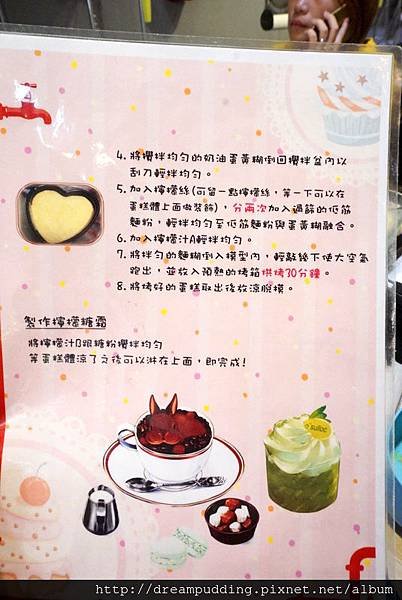 4. 將攪拌均勻的奶油蛋黃糊倒回攪拌盆內以
刮刀輕拌均勻。
5. 加入檸檬絲(可留一點檸檬絲，等一下可以在
蛋糕體上面做裝飾)，分兩次加入過篩的低筋
麵粉，輕拌均勻至低筋麵粉與蛋黃糊融合。
6. 加入檸檬汁A輕拌均勻。
7. 將拌勻的麵糊倒入模型內，輕敲絲下使大空氣
跑出，並放入預熱的烤箱烘烤30分鐘。
8. 將烤好的蛋糕取出後放涼脫模。
製作檸檬糖霜
將檸檬汁B跟糖粉攪拌均勻
等蛋糕體涼了之後可以淋在上面，即完成!
http://dreampudding.pixnet.net/album